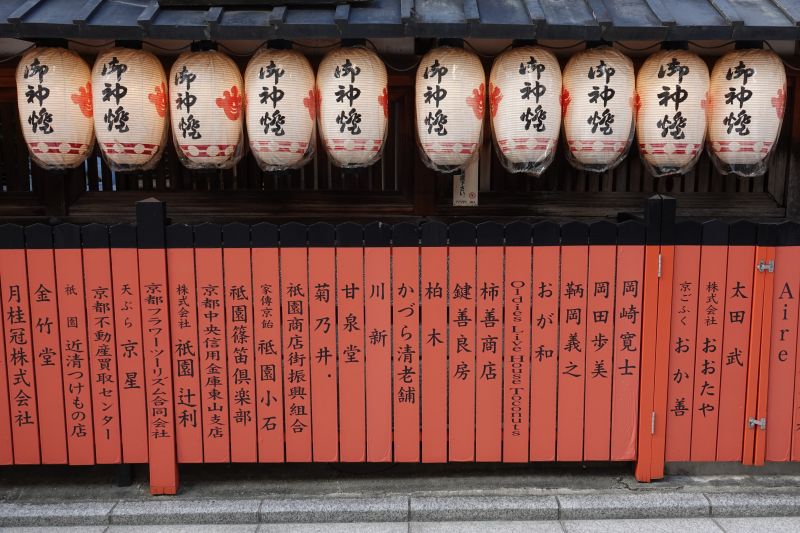 御神燈
御神燈
御神燈
御神燈
御神燈
御神燈
御神燈
御神燈
御神燈
御神燈
月桂冠株式会社
金竹堂
祇園 近清つけもの店
京都不動産買取センター
天ぷら 京星
京都フラワーツーリズム合同会社
株式会社 祇園辻利
京都中央信用金庫東山支店
祇園篠笛倶楽部
家傳京飴 祇園小石
祇園商店街振興組合
菊乃井
甘泉堂
川新
かづら清老舗
柏木
鍵善良房
柿善商店
Oldies Live House Toconuts
おが和
鞆岡義之
岡田歩美
岡崎寛士
京ごふく おか善
株式会社 おおたや
太田武
Aire